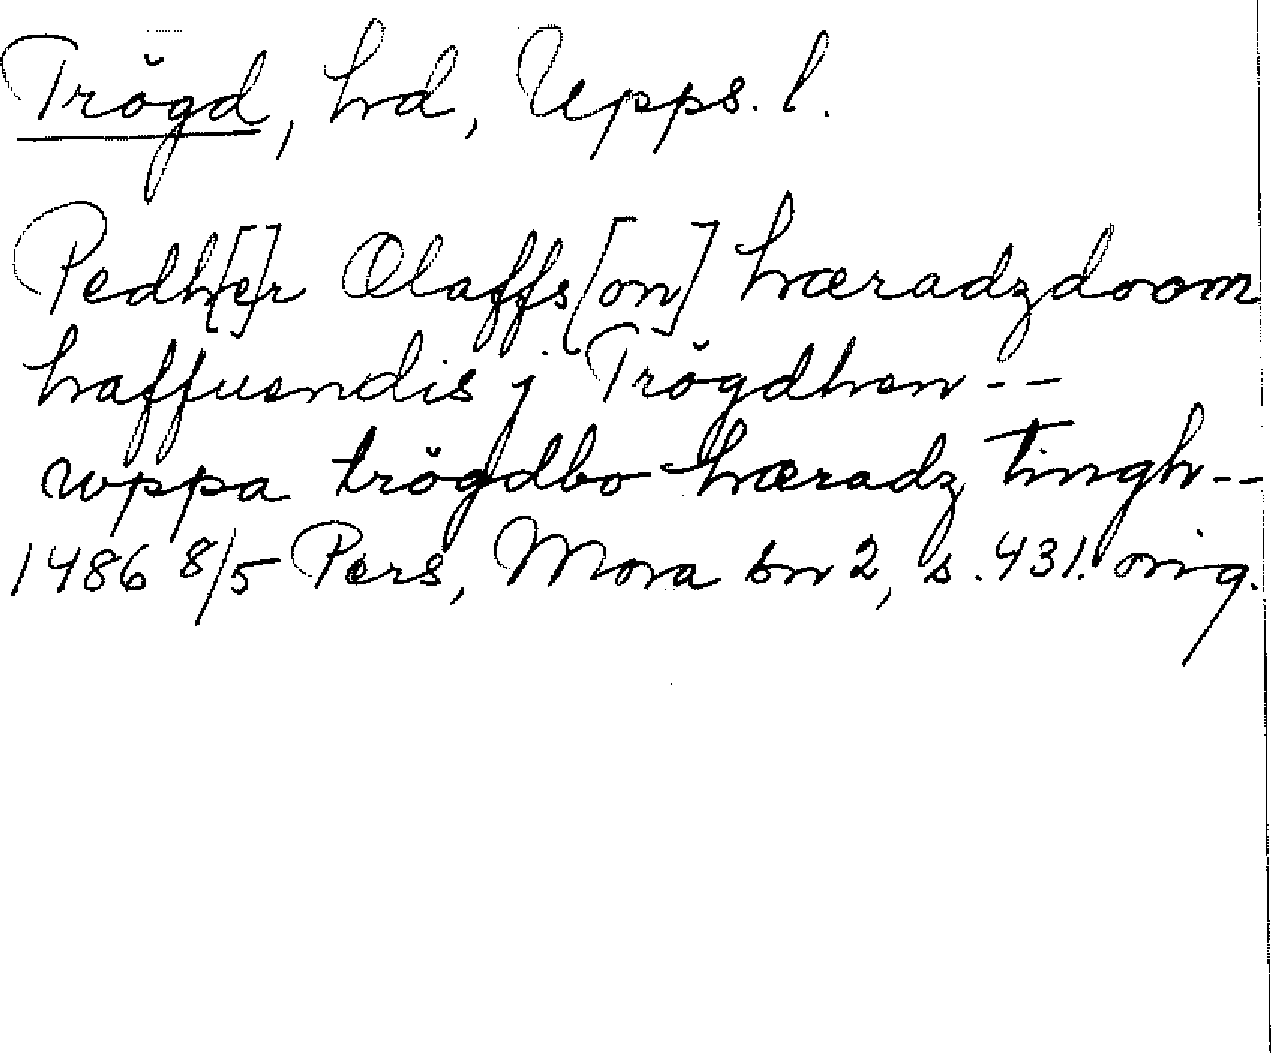 Trögd, hd, Upps. l.
Pedh[e]r Olaffs[on] hæradzdoom
haffuendis j Trögdhen --
wppa trögdbo hæradz tingh --
1486 8/5 Pers, Mora bn 2, s. 431. orig.